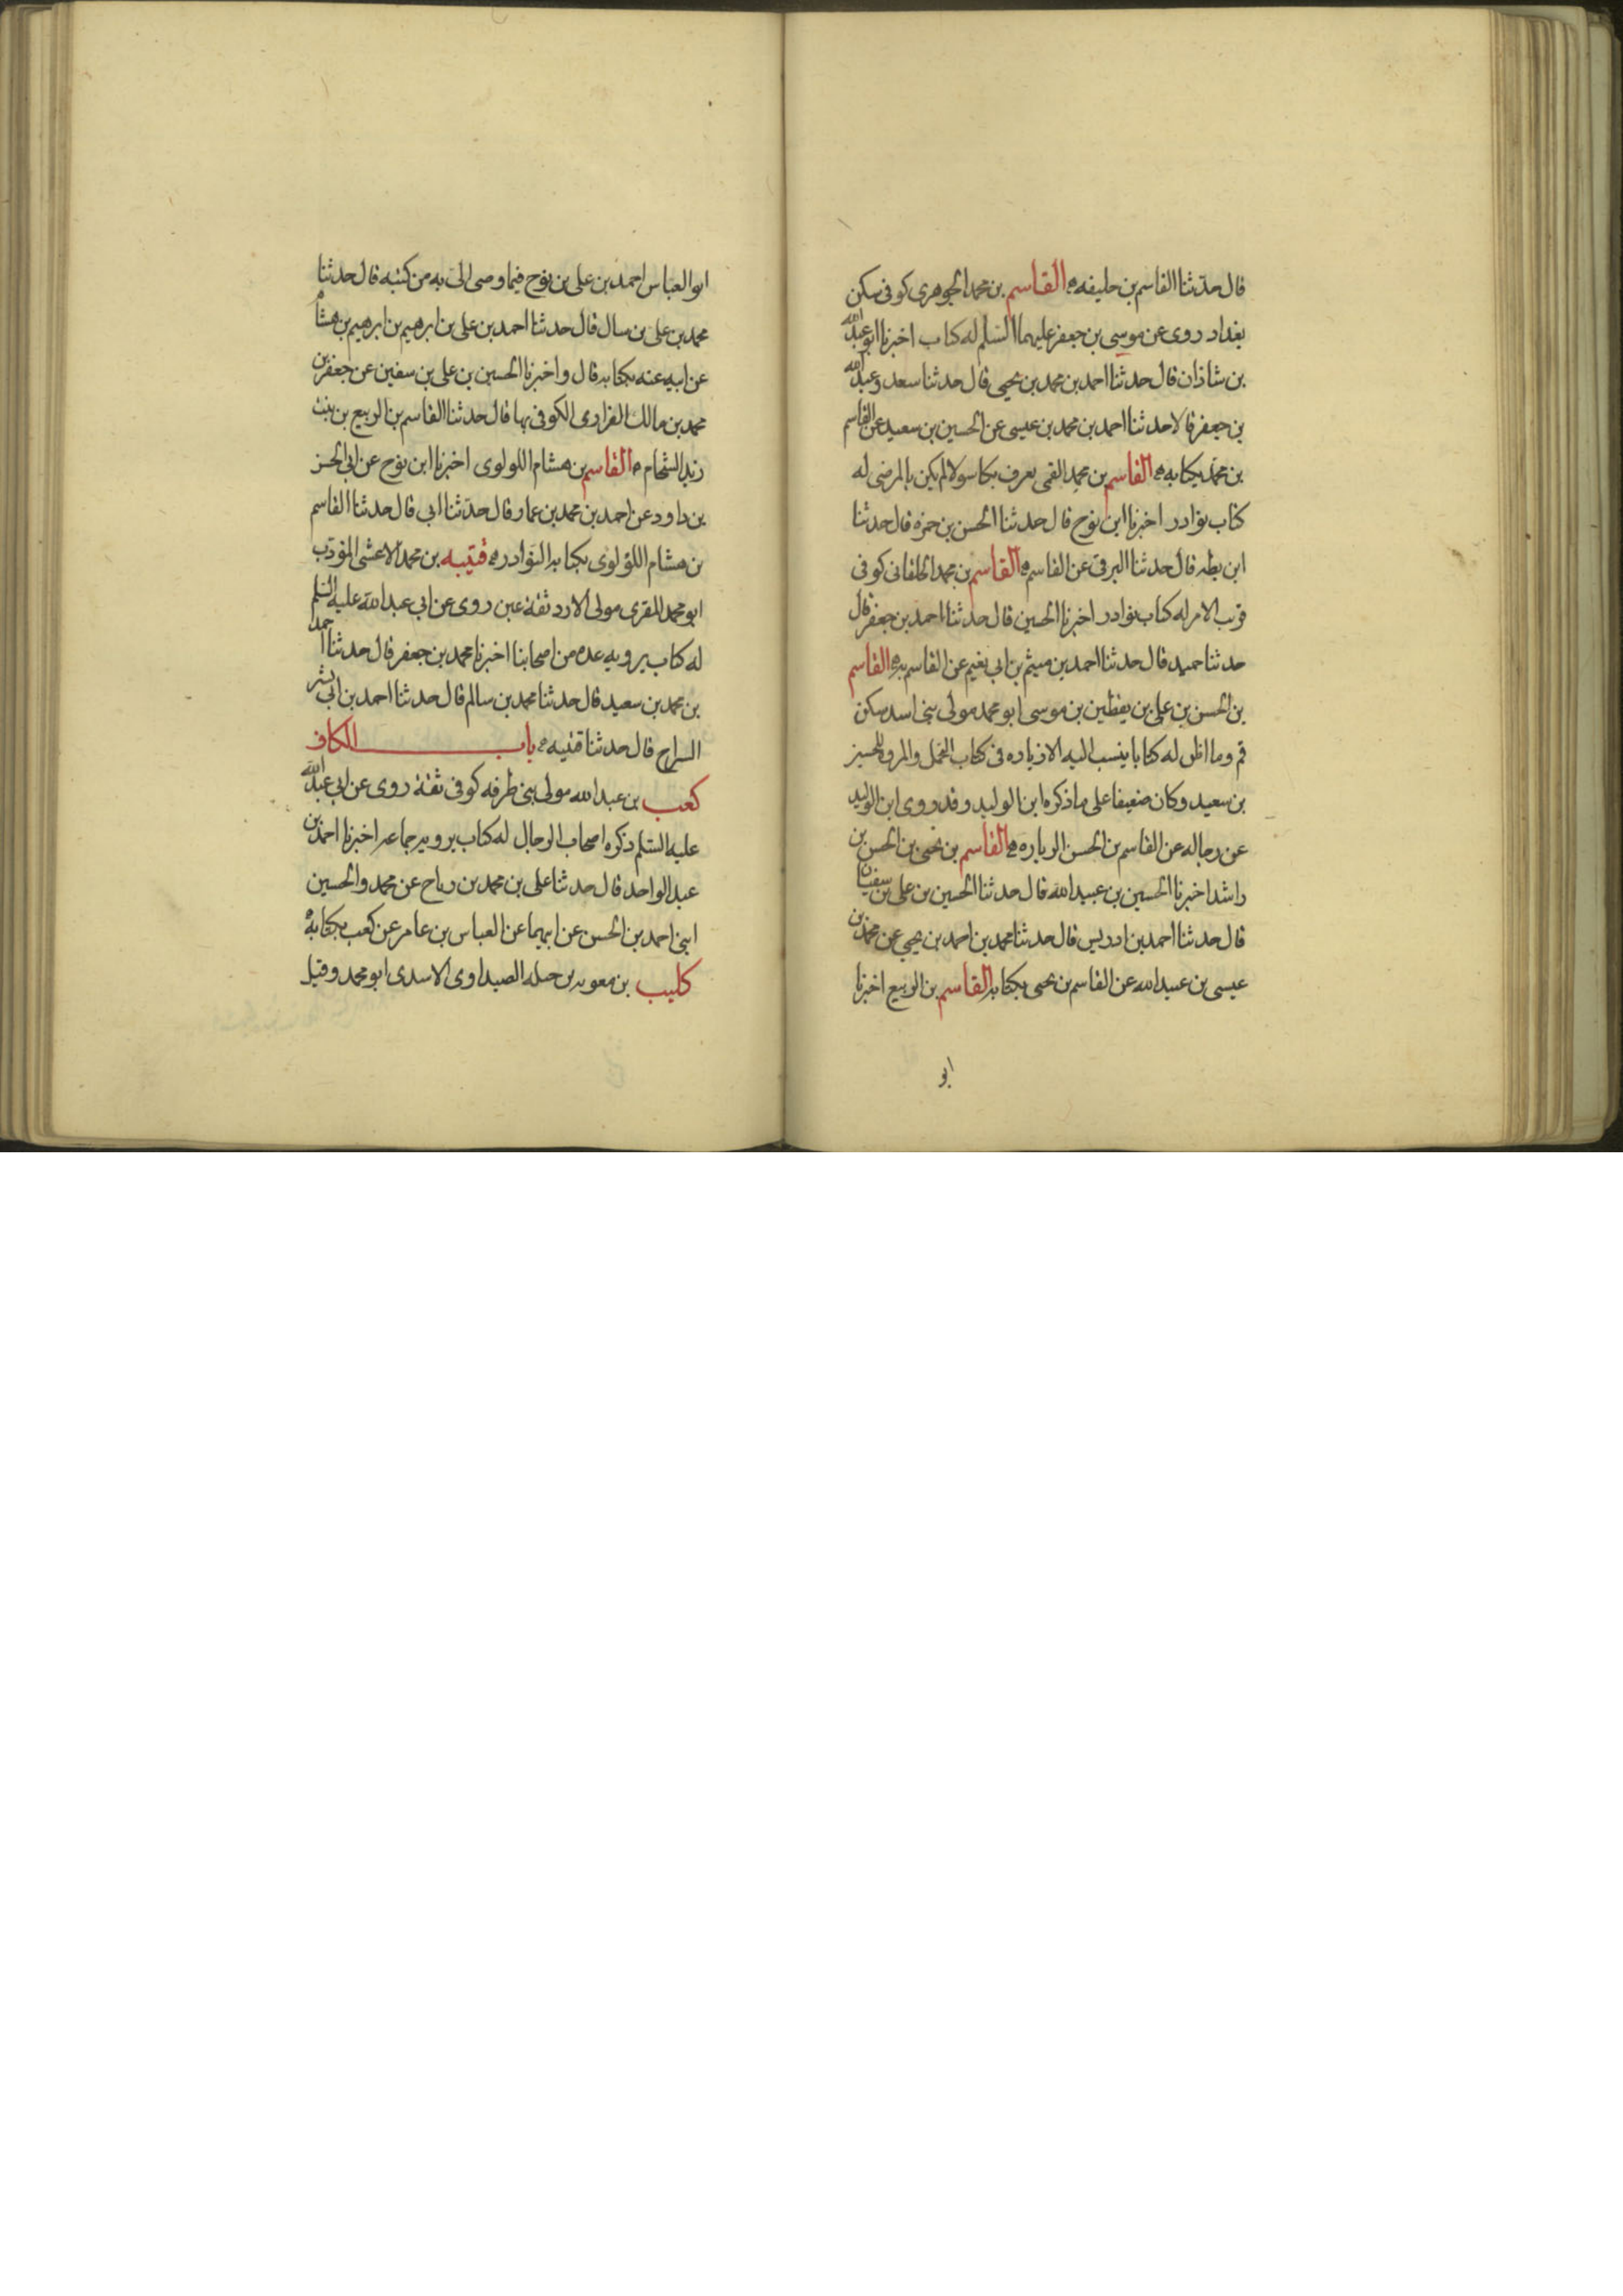 قال حدثنا القاسم بن خليفه القاسم بن محمد الجوهرى كوفى سكن
بغداد روى عن موسى بن جعفر عليهما السلم له كتاب اخبرنا ابو عبد الله
بن شاذان قال حدثنا احمد بن محمد بن يحيى قال حدثنا سعد وعبد الله
بن جعفر قالا حدثنا احمد بن محمد بن عيسى عن الحسين بن سعيد عن القاسم
بن محمد بكتابه القاسم بن محمد القمى يعرف بكاسولا لم يكن بالمرضى له
كتاب نوادر اخبرنا ابن نوح قال حدثنا الحسن بن حمزه قال حدثنا
ابن بطه قال حدثنا البرقى عن القاسم القاسم بن محمد الخلقانى كوفى
قريب الامر له كتاب نوادر اخبرنا الحسين قال حدثنا احمد بن جعفر قال
حدثنا حميد قال حدثنا احمد بن ميثم بن ابى نعيم عن القاسم به القاسم
بن الحسن بن على بن يقطين بن موسى ابو محمد مولى بنى اسد سكن
قم وما اظن له كتابا ينسب اليه الا زياده فى كتاب التجمل والمروه للحسين
بن سعيد وكان ضعيفا على ما ذكره ابن الوليد وقد روى ابن الوليد
عن رجاله عن القاسم بن الحسن الزياده القاسم بن يحيى بن الحسن بن
راشد اخبرنا الحسين بن عبيد الله قال حدثنا الحسين بن على بن سفيان
قال حدثنا احمد بن ادريس قال حدثنا محمد بن احمد بن يحيى عن محمد بن
عيسى بن عبيد الله عن القاسم بن يحيى بكتابه القاسم بن الربيع اخبرنا
ابو
ابو العباس احمد بن على بن نوح فيما وصى الى به من كتبه قال حدثنا
محمد بن على بن سال قال حدثنا احمد بن على بن ابرهيم بن ابرهيم بن هشام
عن ابيه عنه بكتابه قال واخبرنا الحسين بن على بن سفين عن جعفر بن
محمد بن مالك الفزارى الكوفى بها قال حدثنا القاسم بن الربيع بن بنت
زيد الشحام القاسم بن هشام اللولوى اخبرنا ابن نوح عن ابى الحسن
بن داود عن احمد بن محمد بن عمار قال حدثنا ابى قال حدثنا القاسم
بن هشام اللؤلوى بكتابه النوادر قتيبه بن محمد الاعشى المؤدب
ابو محمد المقرى مولى الازد ثقة عين روى عن ابى عبد الله عليه السلم
له كتاب يرويه عده من اصحابنا اخبرنا محمد بن جعفر قال حدثنا احمد
بن محمد بن سعيد قال حدثنا محمد بن سالم قال حدثنا احمد بن ابى بشر
السراج قال حدثنا قتيبه باب الكاف
كعب بن عبد الله مولى بنى طرفه كوفى ثقة روى عن ابى عبد الله
عليه السلم ذكره اصحاب الرجال له كتاب يرويه جماعه اخبرنا احمد بن
عبد الواحد قال حدثنا على بن محمد بن رباح عن محمد والحسين
ابنى احمد بن الحسن عن ابيهما عن العباس بن عامر عن كعب بكتابه
كليب بن معويه بن جبله الصيداوى الاسدى ابو محمد وقيل